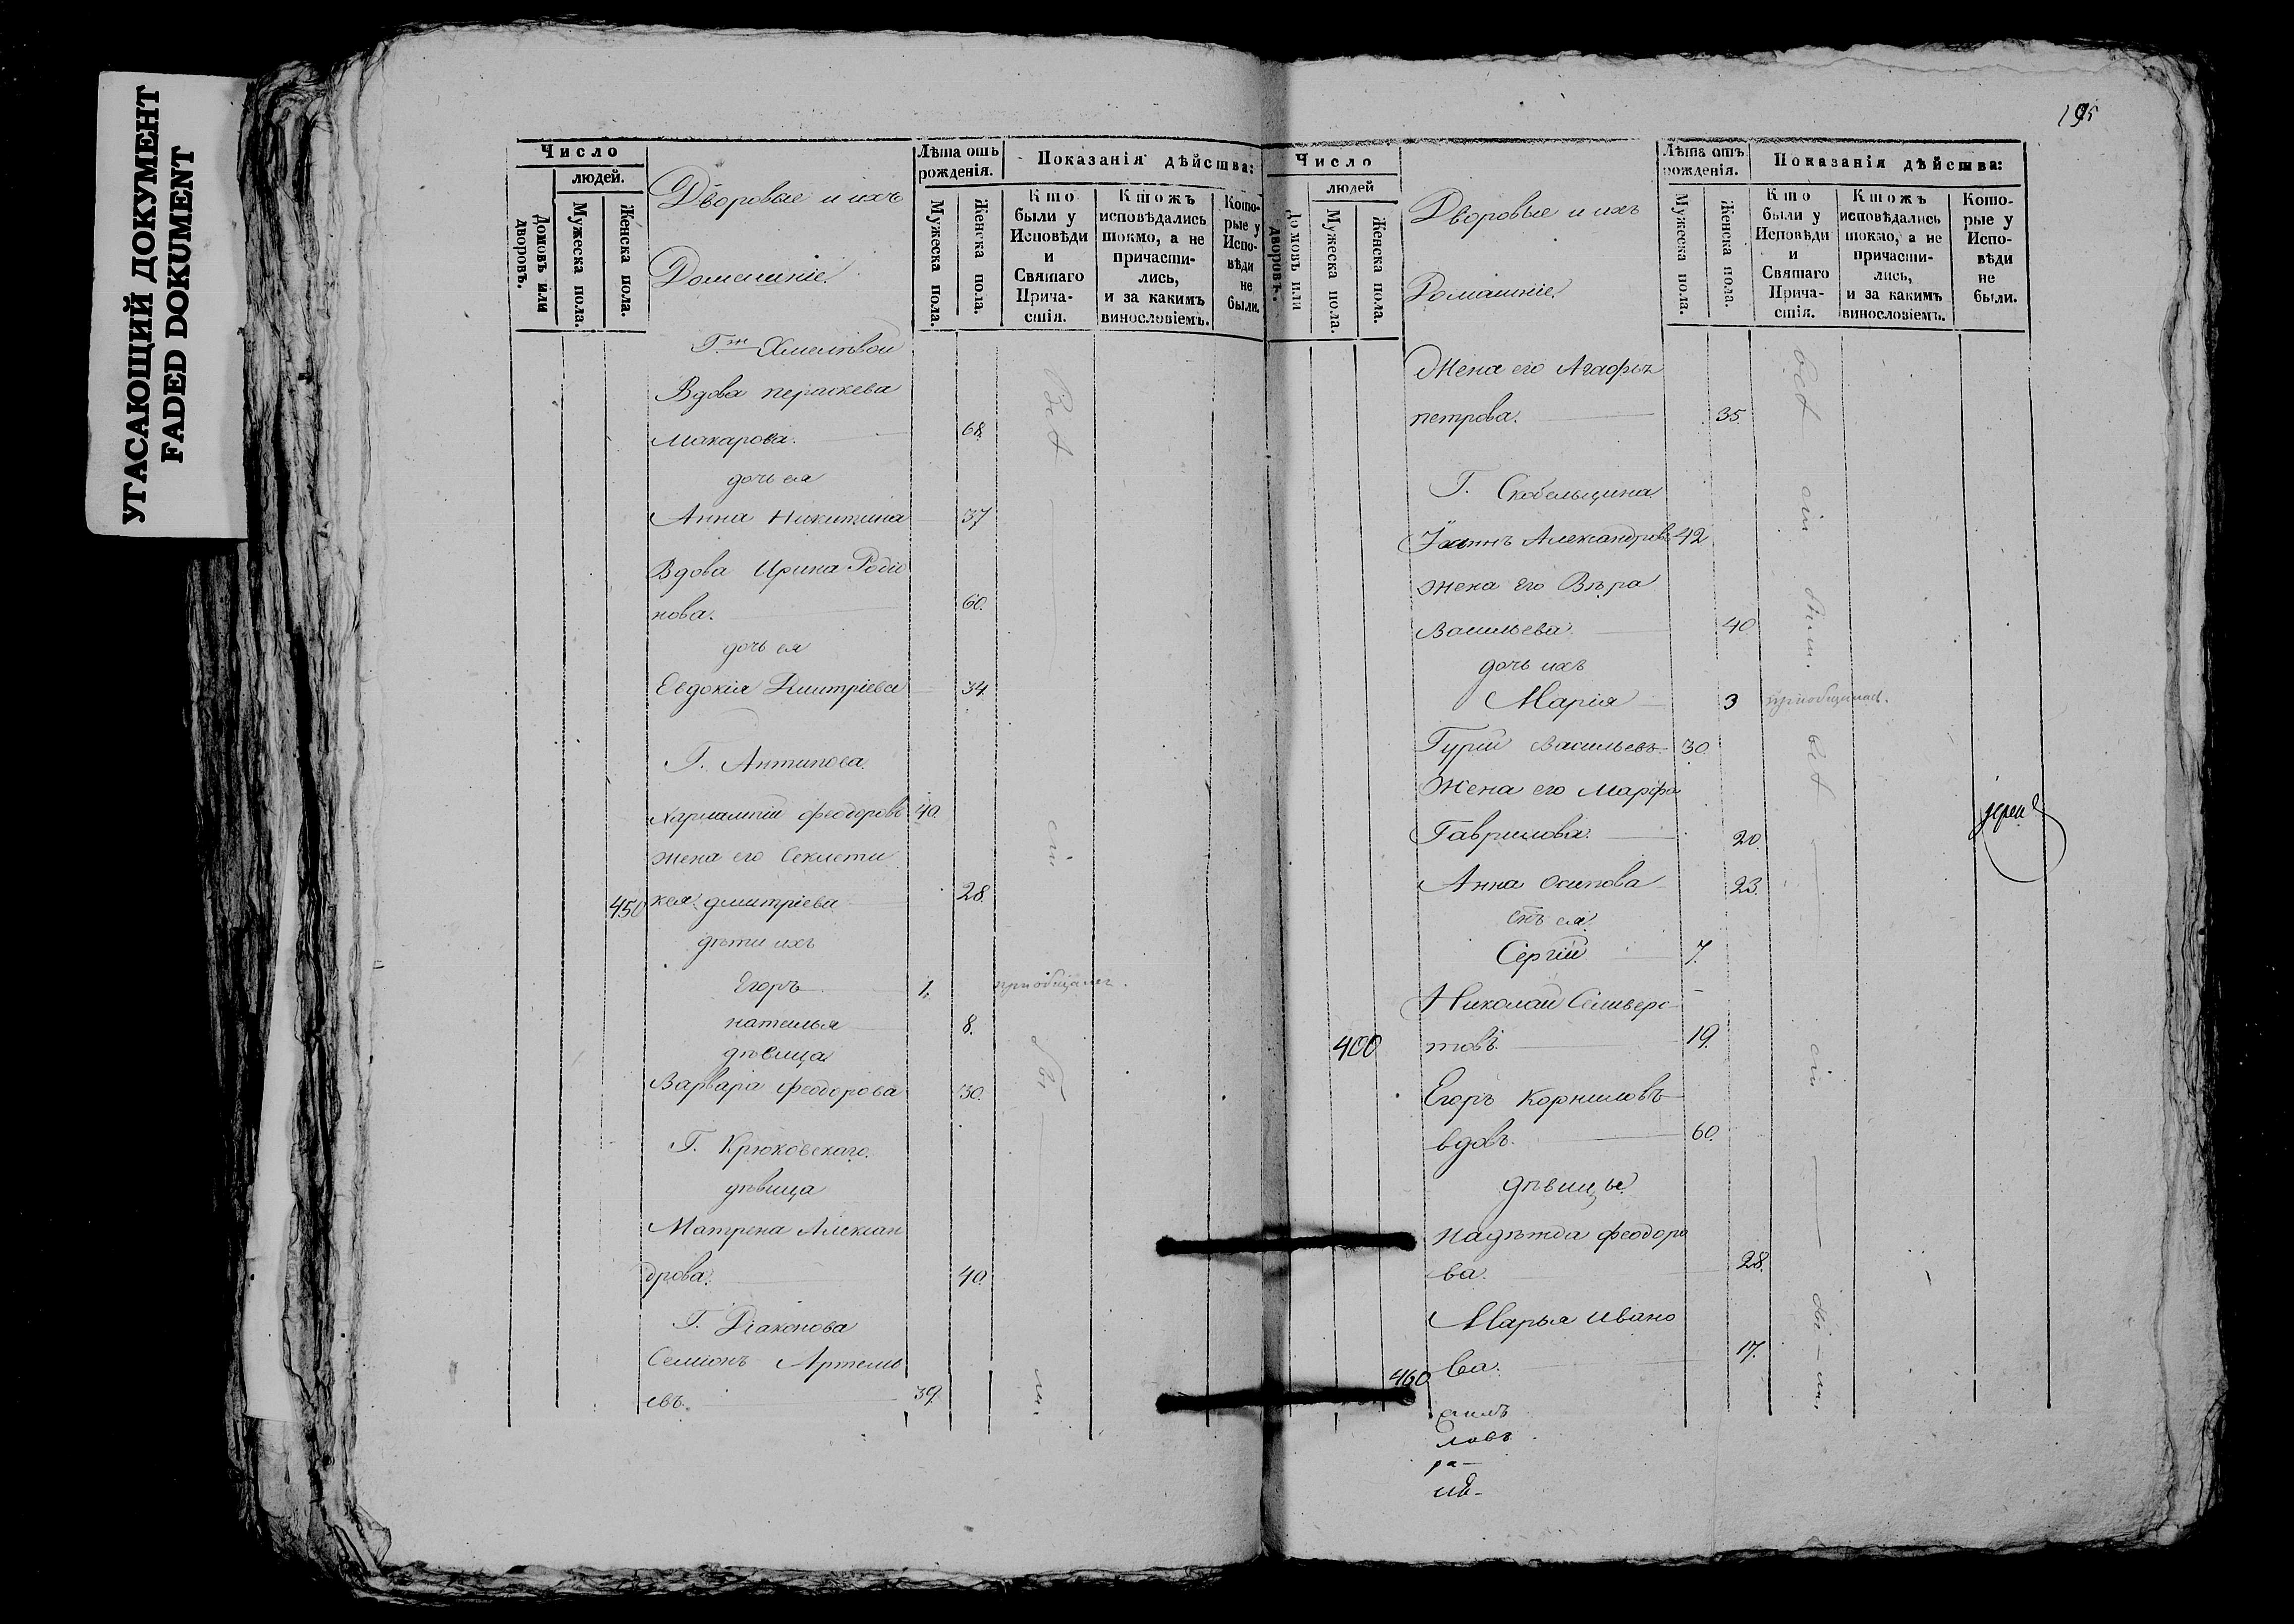 УТАСАЮЩИЙ ДОКУМЕНТ
FADED DOKUMENT
Число
людей.
Домовъ или дворовъ.
Мужеска пола.
Женска пола.
Дворовые и ихъ
Домашніе.
Лѣта отъ рожденія.
Мужеска пола.
Женска пола.
Показанія дѣйства:
Кто были у Исповѣди и Святаго Причастія.
Ктожъ исповѣдались токмо, а не причастились, и за какимъ винословіемъ.
Которые у Исповѣди не были.
Вдова Параскева
Макарова. 68.
дочь ея
Анна Никитина 37
Вдова Ирина Родіо
нова. 60.
дочь ея
Евдокія Дмитріева 34.
Г. Антипова
Харлампій Феодоровъ 40.
жена его Секлети
450 кея дмитріева 28.
дѣти их
Егоръ 1. приобщался.
Наталья 8.
дѣвица
Варвара Феодорова 30.
Г. Крюковскаго.
дѣвица
Матрена Алексан
дрова. 40.
Г. Діаконова
Семіонъ Артемь
евъ. 39.
195
Число
людей
Домовъ или дворовъ.
Мужеска пола.
Женска пола.
Дворовые и ихъ
Домашніе.
Лѣта отъ рожденія.
Мужеска пола.
Женска пола.
Показанія дѣйства:
Кто были у Исповѣди и Святаго Причастія.
Ктожъ исповѣдались токмо, а не причастились, и за какимъ винословіемъ.
Которые у Исповѣди не были.
Жена его Агафья
петрова. 35
Г. Скобельцина
Іоаннъ Александровъ 42
жена его Вѣра
Васильева 40
дочь ихъ
Марія 3 приобщалась.
Гурій Васильевъ 30.
Жена его Марфа
Гаврилова. 20.
Анна Осипова 23.
сṅъ ея
Сергій 7.
Николай Селиверс
400 товъ. 19.
Егоръ Корниловъ
вдовъ. 60.
дѣвицы
Надѣжда Феодоро
ва. 28.
Марья Ивано
460 ва. 17.
іерей